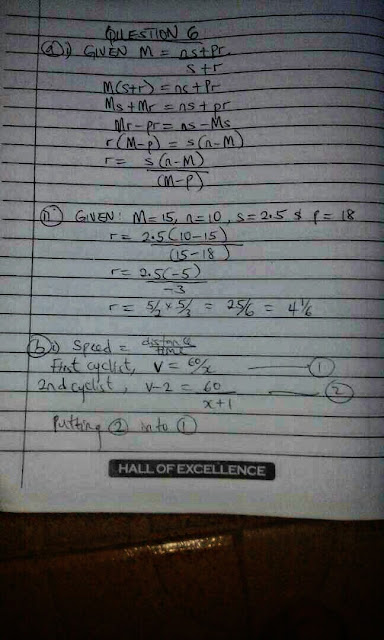 QUESTION 6
(a) i) GIVEN M = ns + pr
s + r
M(s+r) = ns + Pr
Ms + Mr = ns + pr
Mr - pr = ns - Ms
r(M-p) = s(n-M)
r = s(n-M)
(M-p)
(ii) GIVEN: M=15, n=10, s=2.5 & p=18
r = 2.5(10-15)
(15-18)
r = 2.5(-5)
-3
r = 5/2 × 5/3 = 25/6 = 4 1/6
(b) i) Speed = distance
time
First cyclist, V = 60/x — (1)
2nd cyclist, V-2 = 60 — (2)
x+1
Putting (2) into (1)
HALL OF EXCELLENCE